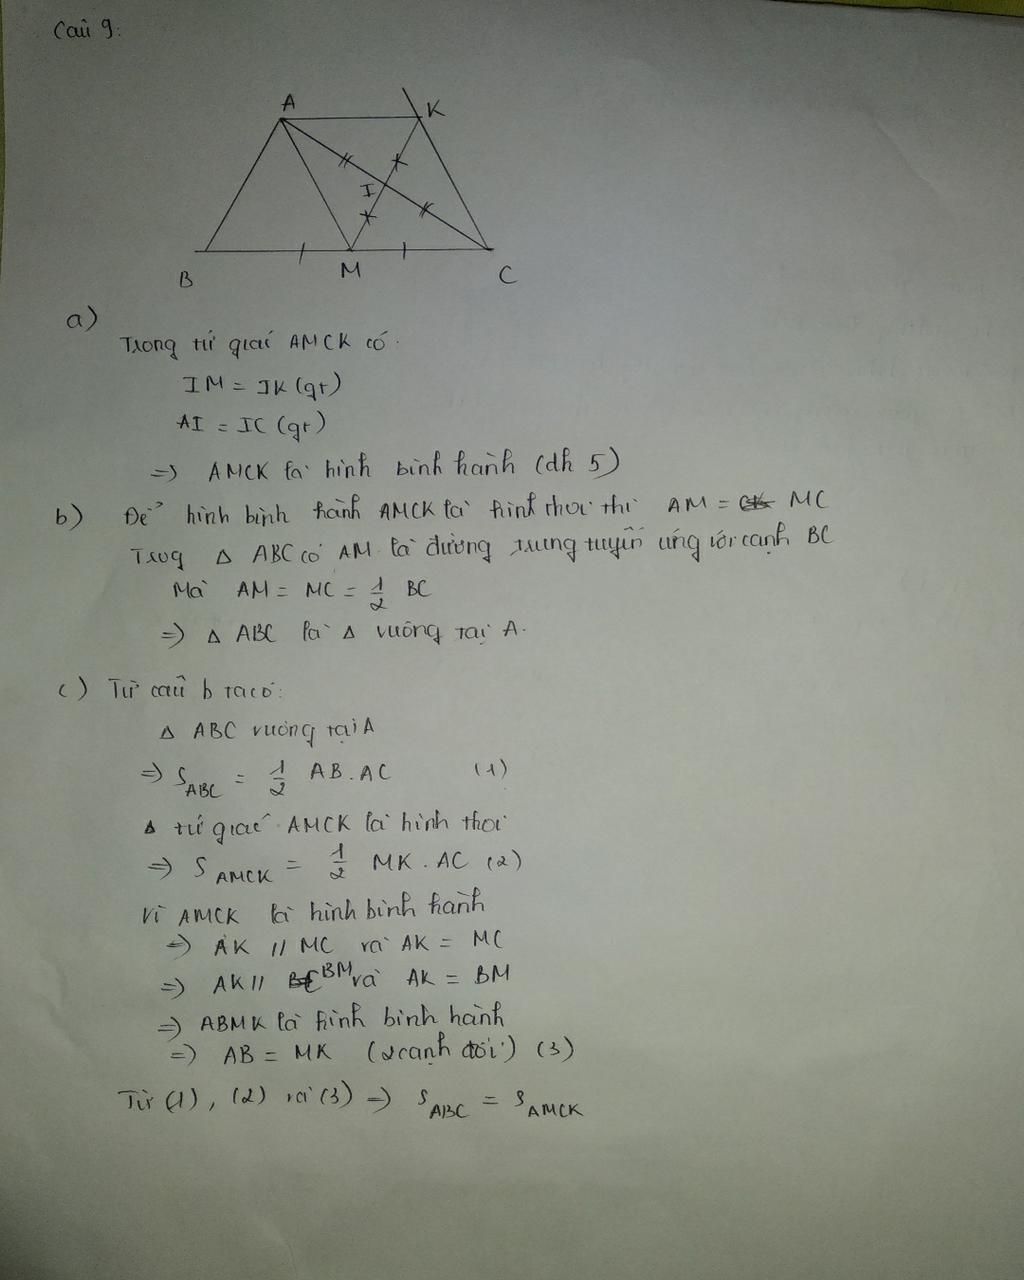 Câu 9:
A
K
I
B
M
C
a)
Trong tứ giác AMCK có
IM = IK (gt)
AI = IC (gt)
=> AMCK là hình bình hành (dh 5)
b) Để hình bình hành AMCK là hình thoi thì AM = MC
Trog Δ ABC có AM là đường trung tuyến ứng với cạnh BC
Mà AM = MC = 1/2 BC
=> Δ ABC là Δ vuông tại A.
c) Từ câu b ta có:
Δ ABC vuông tại A
=> S_ABC = 1/2 AB.AC (1)
Δ tứ giác AMCK là hình thoi
=> S_AMCK = 1/2 MK.AC (2)
Vì AMCK là hình bình hành
=> AK // MC và AK = MC
=> AK // BM và AK = BM
=> ABMK là hình bình hành
=> AB = MK (2 cạnh đối) (3)
Từ (1), (2) và (3) => S_ABC = S_AMCK